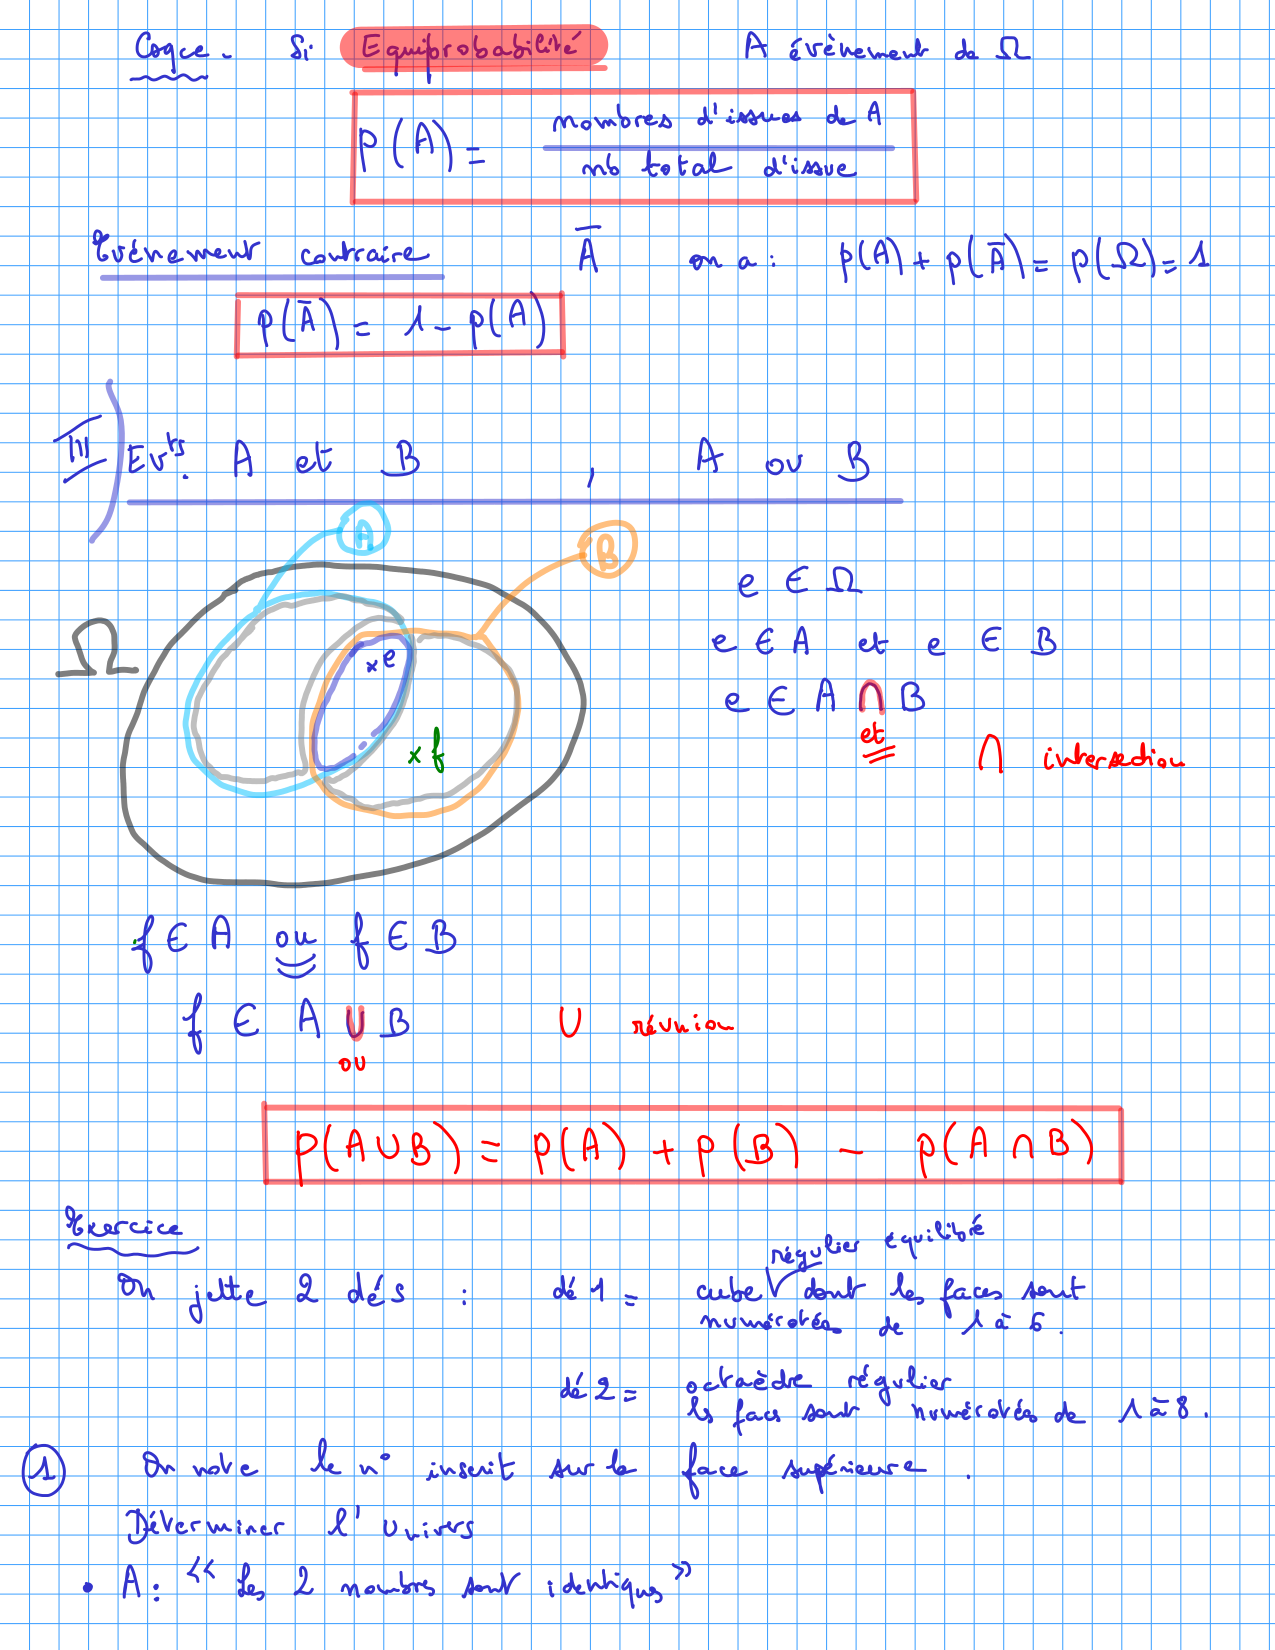 Coqce. Si Equiprobabilité A évènement de Ω
p(A) = nombres d'issues de A / nb total d'issue
Evénement contraire Ā on a : p(A) + p(Ā) = p(Ω) = 1
p(Ā) = 1 - p(A)
III) Evts. A et B , A ou B
A B
Ω
e ∈ Ω
e ∈ A et e ∈ B
×e
e ∈ A ∩ B
et
×f
∩ intersection
f ∈ A ou f ∈ B
f ∈ A ∪ B ∪ réunion
ou
p(A∪B) = p(A) + p(B) - p(A ∩ B)
Exercice
régulier équilibré
On jette 2 dés : dé 1 = cube √ dont les faces sont
numérotées de 1 à 6.
dé 2 = octaèdre régulier
les faces sont numérotés de 1 à 8.
① On note le n° inscrit sur la face supérieure.
Déterminer l'univers
• A : « Les 2 nombres sont identiques »